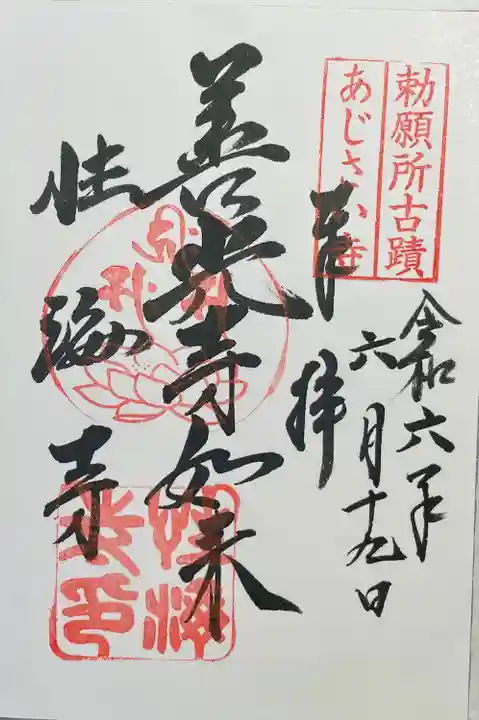 勅願所古蹟
あじさい寺
令和六年
六月十九日
奉拝
善光寺如来
性海寺